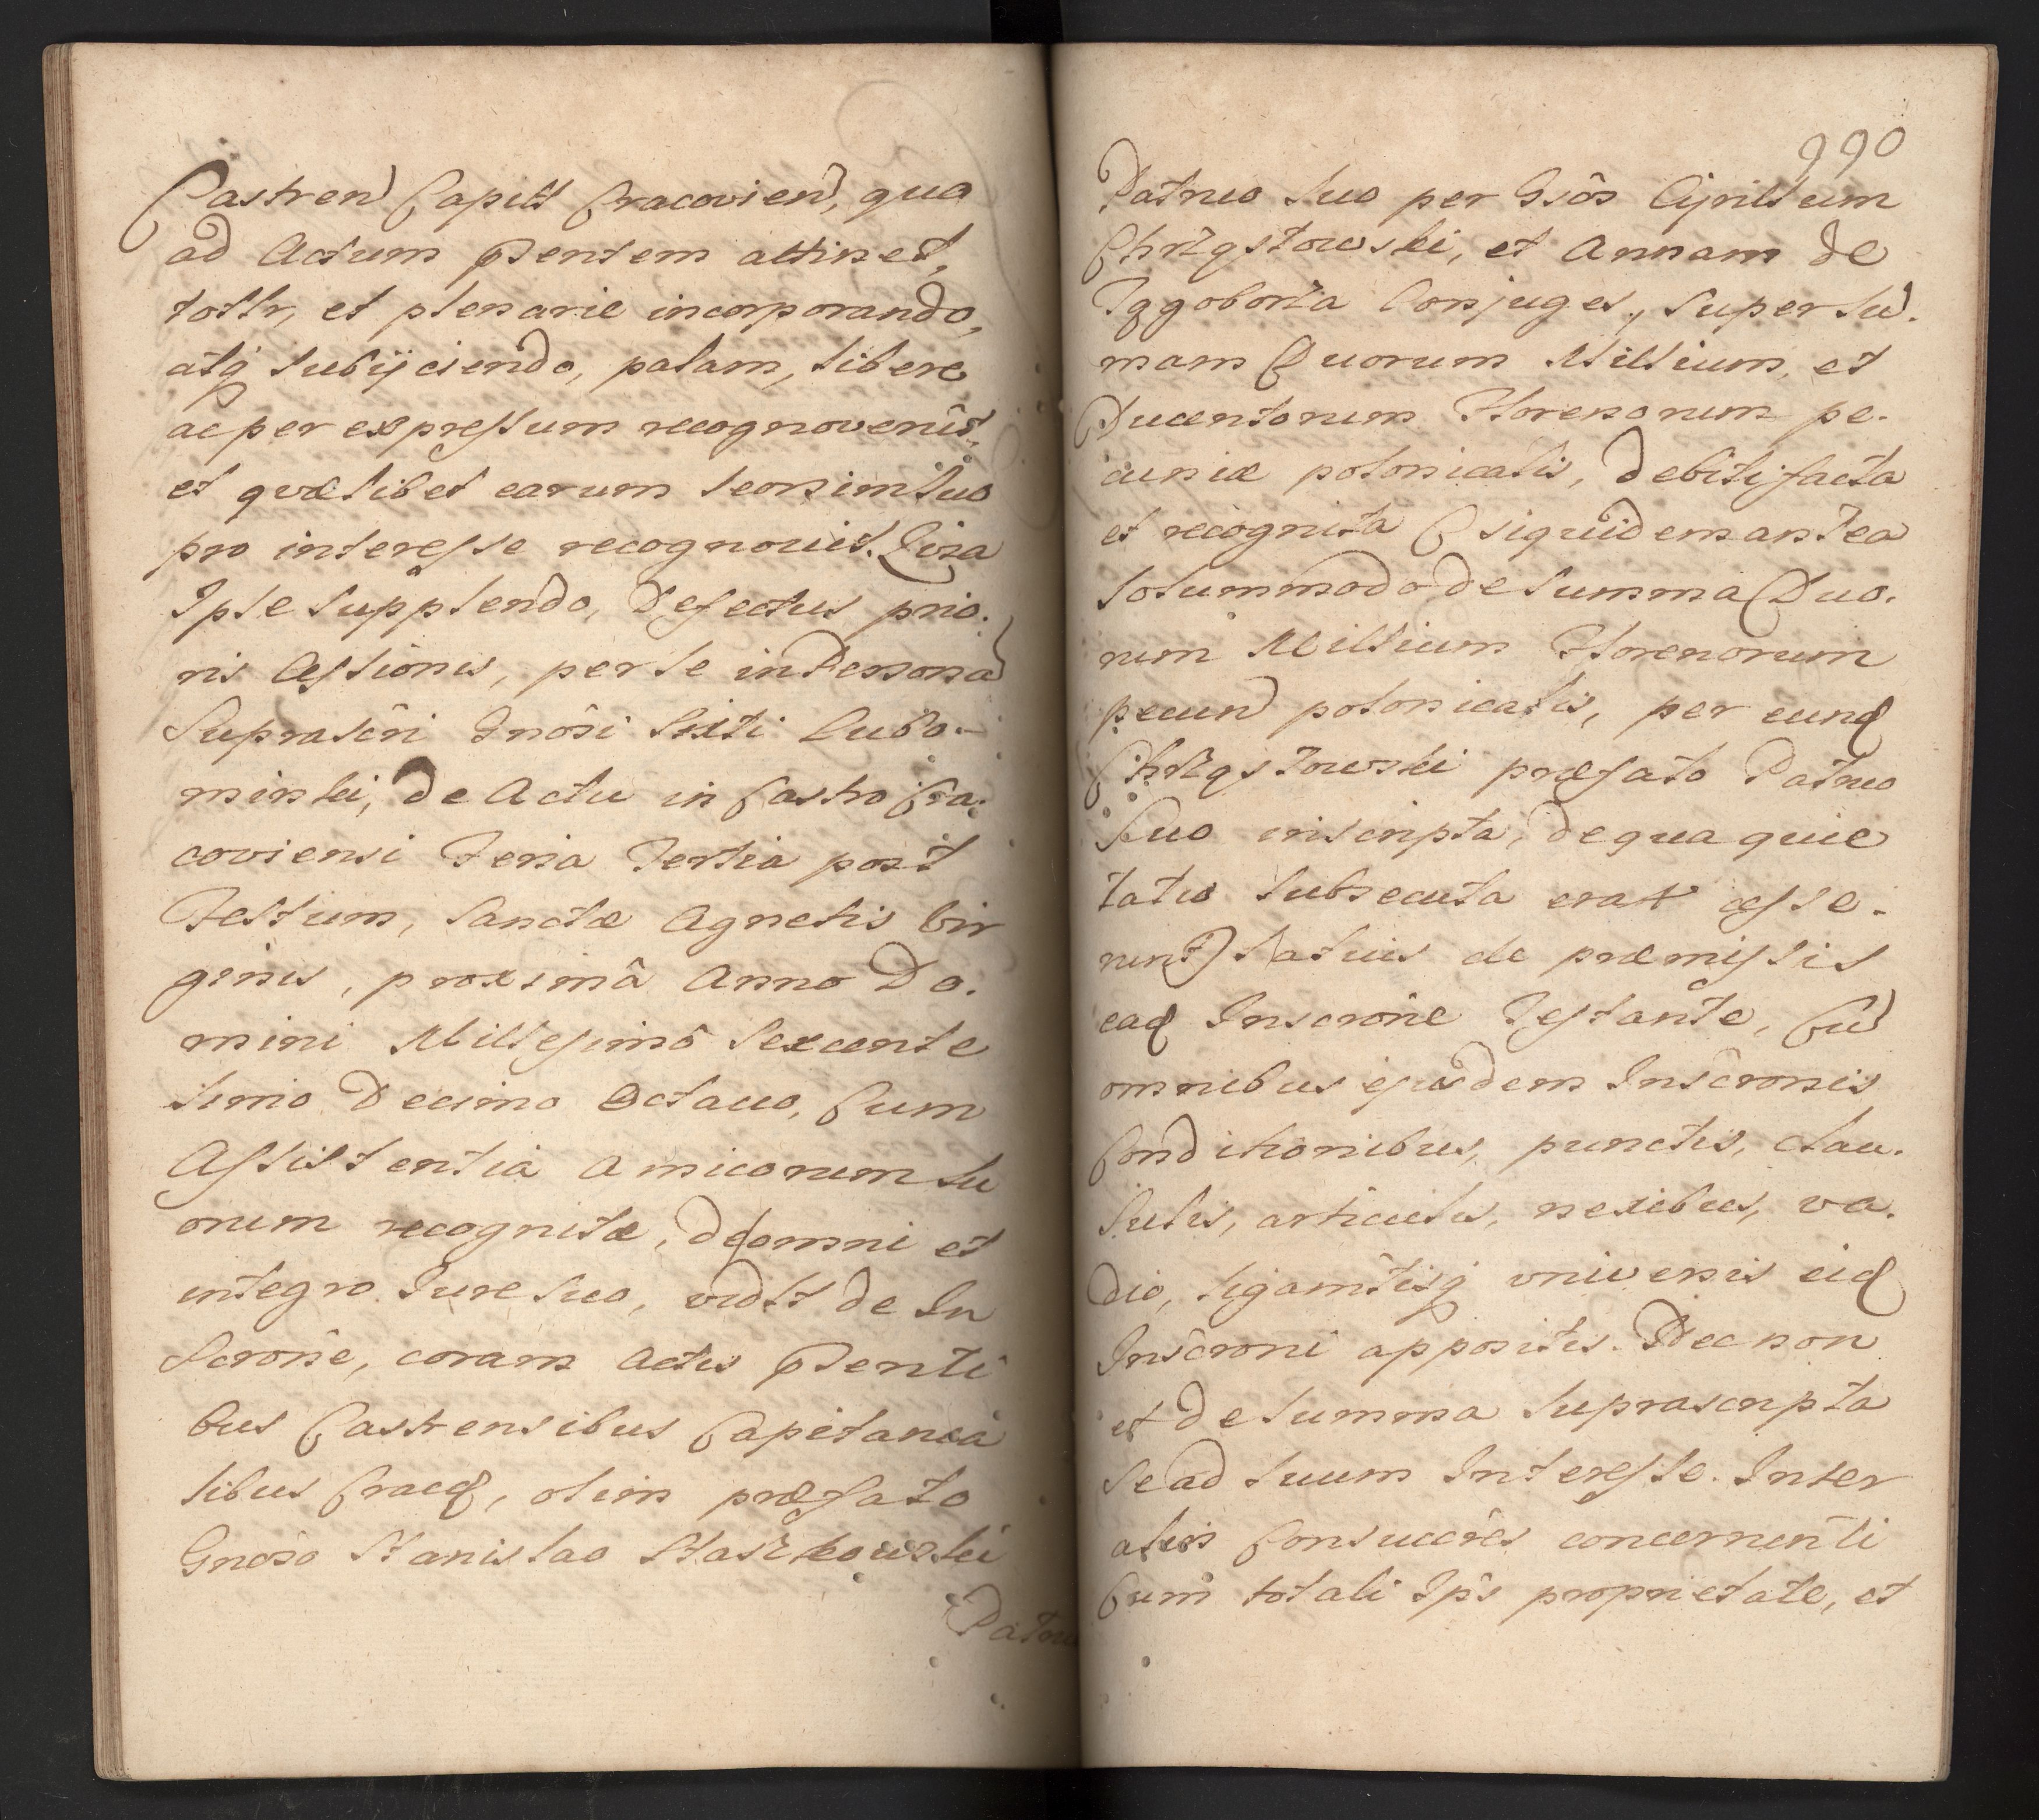 Castren Capitt Cracovien, qua
ad Actum pntem attinet,
tottr, et plenarie incorporando,
atq subijciendo, palam, libere
ac per expressum recognoverût
et quælibet earum seorsim suo
pro interesse recognovit. Quia
Ipse supplendo, defectus prio.
ris Assionis, per se in Persona
Suprascri Gnosi Sixti Lubo.
mirski, de Actu in Castro Cra.
coviensi Feria Tertia post
Festum, Sanctæ Agnetis Vir
ginis, proximâ Anno Do.
mini Millesimô Sexcente
simo Decimo Octavo, Cum
Assistentia amicorum su
orum recognitæ, de omni et
integro Iure suo, vidtt de In
Scroñe, coram Actis pnti
bus Castrensibus Capitanea
libus Cracq, olim præfato
Gnoso Stanislao Staszkowski
Patruo
990
Patruo suo per Gsôs Cyrillum
Chrząstowski, et Annam de
Zggoborza Conjuges, super su.
mam Duorum Millium, et
Ducentorum Florenorum pe.
cuniæ polonicalis, debiti facta
et recognita (siquidem antea
solummodo de summa Duo.
rum Millium Florenorum
pecun polonicalis, per eunq
Chrząstowski præfato Patruo
Suo inscripta, de qua quie
tatio subsecuta erat cesse.
runt) latius de præmissis
eaq Inscrone Testante, Cu
omnibus ejusdem Inscronis
Conditionibus, punctis, clau.
sulis, articulis, nexibus, va.
dio, ligamtisq universis eiq
Inscroni appositis. Necnon
et de summa suprascripta
se ad suum Interesse. Inter
alios Consuccres concernenti
Cum totali Ips proprietate, et